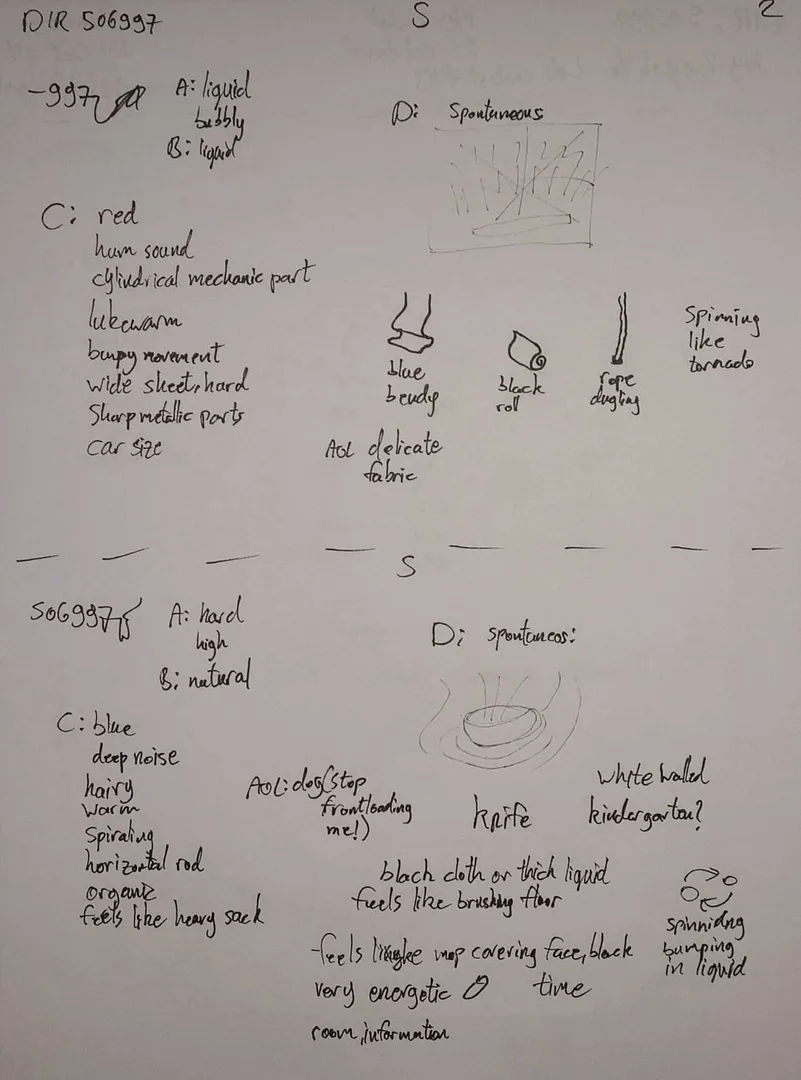 DIR 506997
S
2
-997
A: liquid
bubbly
B: liquid
C: red
hum sound
cylindrical mechanic part
lukewarm
bumpy movement
wide sheet, hard
Sharp metallic parts
car size
D: Spontuneous
blue
bendy
black
roll
rope
dugling
Spinning
like
tornado
AOL delicate
fabric
S
506997
A: hard
high
B: natural
C: blue
deep noise
hairy
warm
Spiraling
horizontal rod
organic
feels like heavy sack
D: spontuneos:
AOL: dog (stop
frontloading
me!)
knife
white walled
kindergarten?
black cloth or thick liquid
feels like brushing floor
feels like mop covering face, black
very energetic
time
room, information
spinnidng
bumping
in liquid